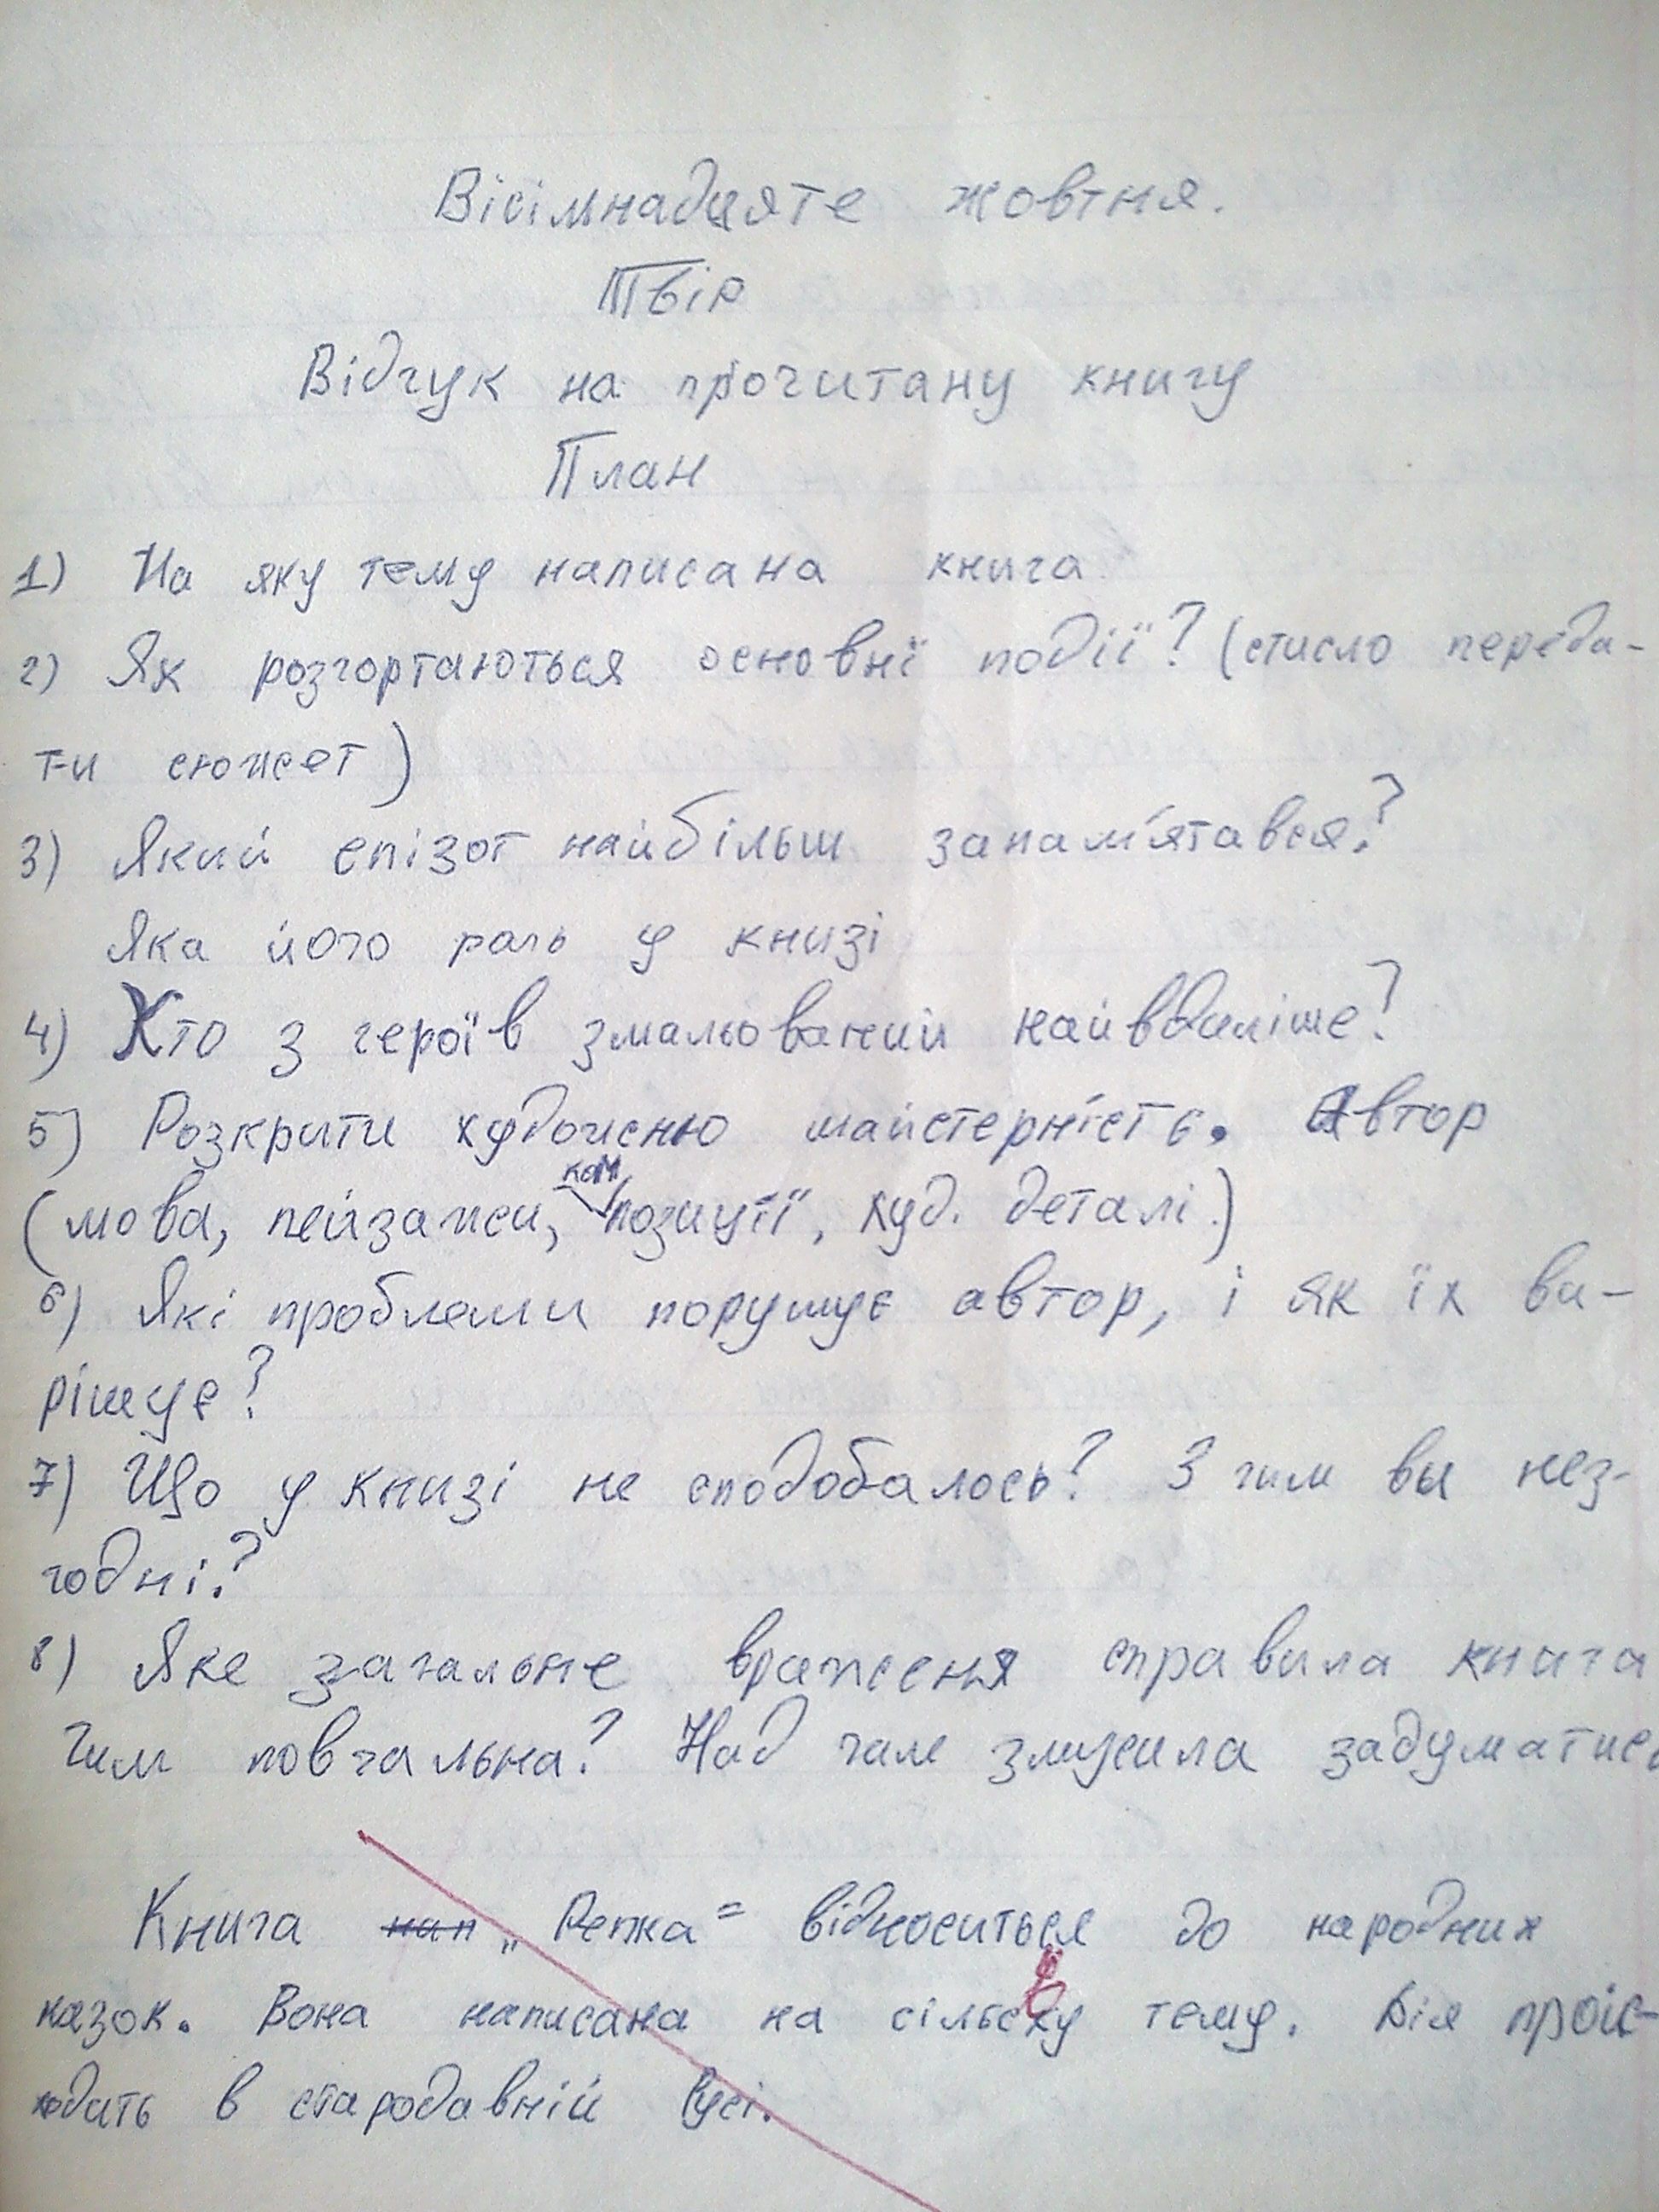 Вісімнадцяте жовтня.
Твір
Відгук на прочитану книгу
План
1) На яку тему написана книга
2) Як розгортаються основні події? (стисло переда-
ти сюжет)
3) Який епізот найбільш запам'ятався?
Яка його роль у книзі
4) Хто з героїв змальований найвдаліше?
5) Розкрити художню майстерність. Автор
(мова, пейзажи, композиції, худ. деталі.)
6) Які проблеми порушує автор, і як їх ви-
рішує?
7) Що у книзі не сподобалось? З чим ви нез-
годні?
8) Яке загальне враження справила книга
Чим повчальна? Над чим змусила задуматись
Книга нап „Репка" відноситься до народних
казок. Вона написана на сільську тему. Дія проіс-
ходить в стародавній Русі.